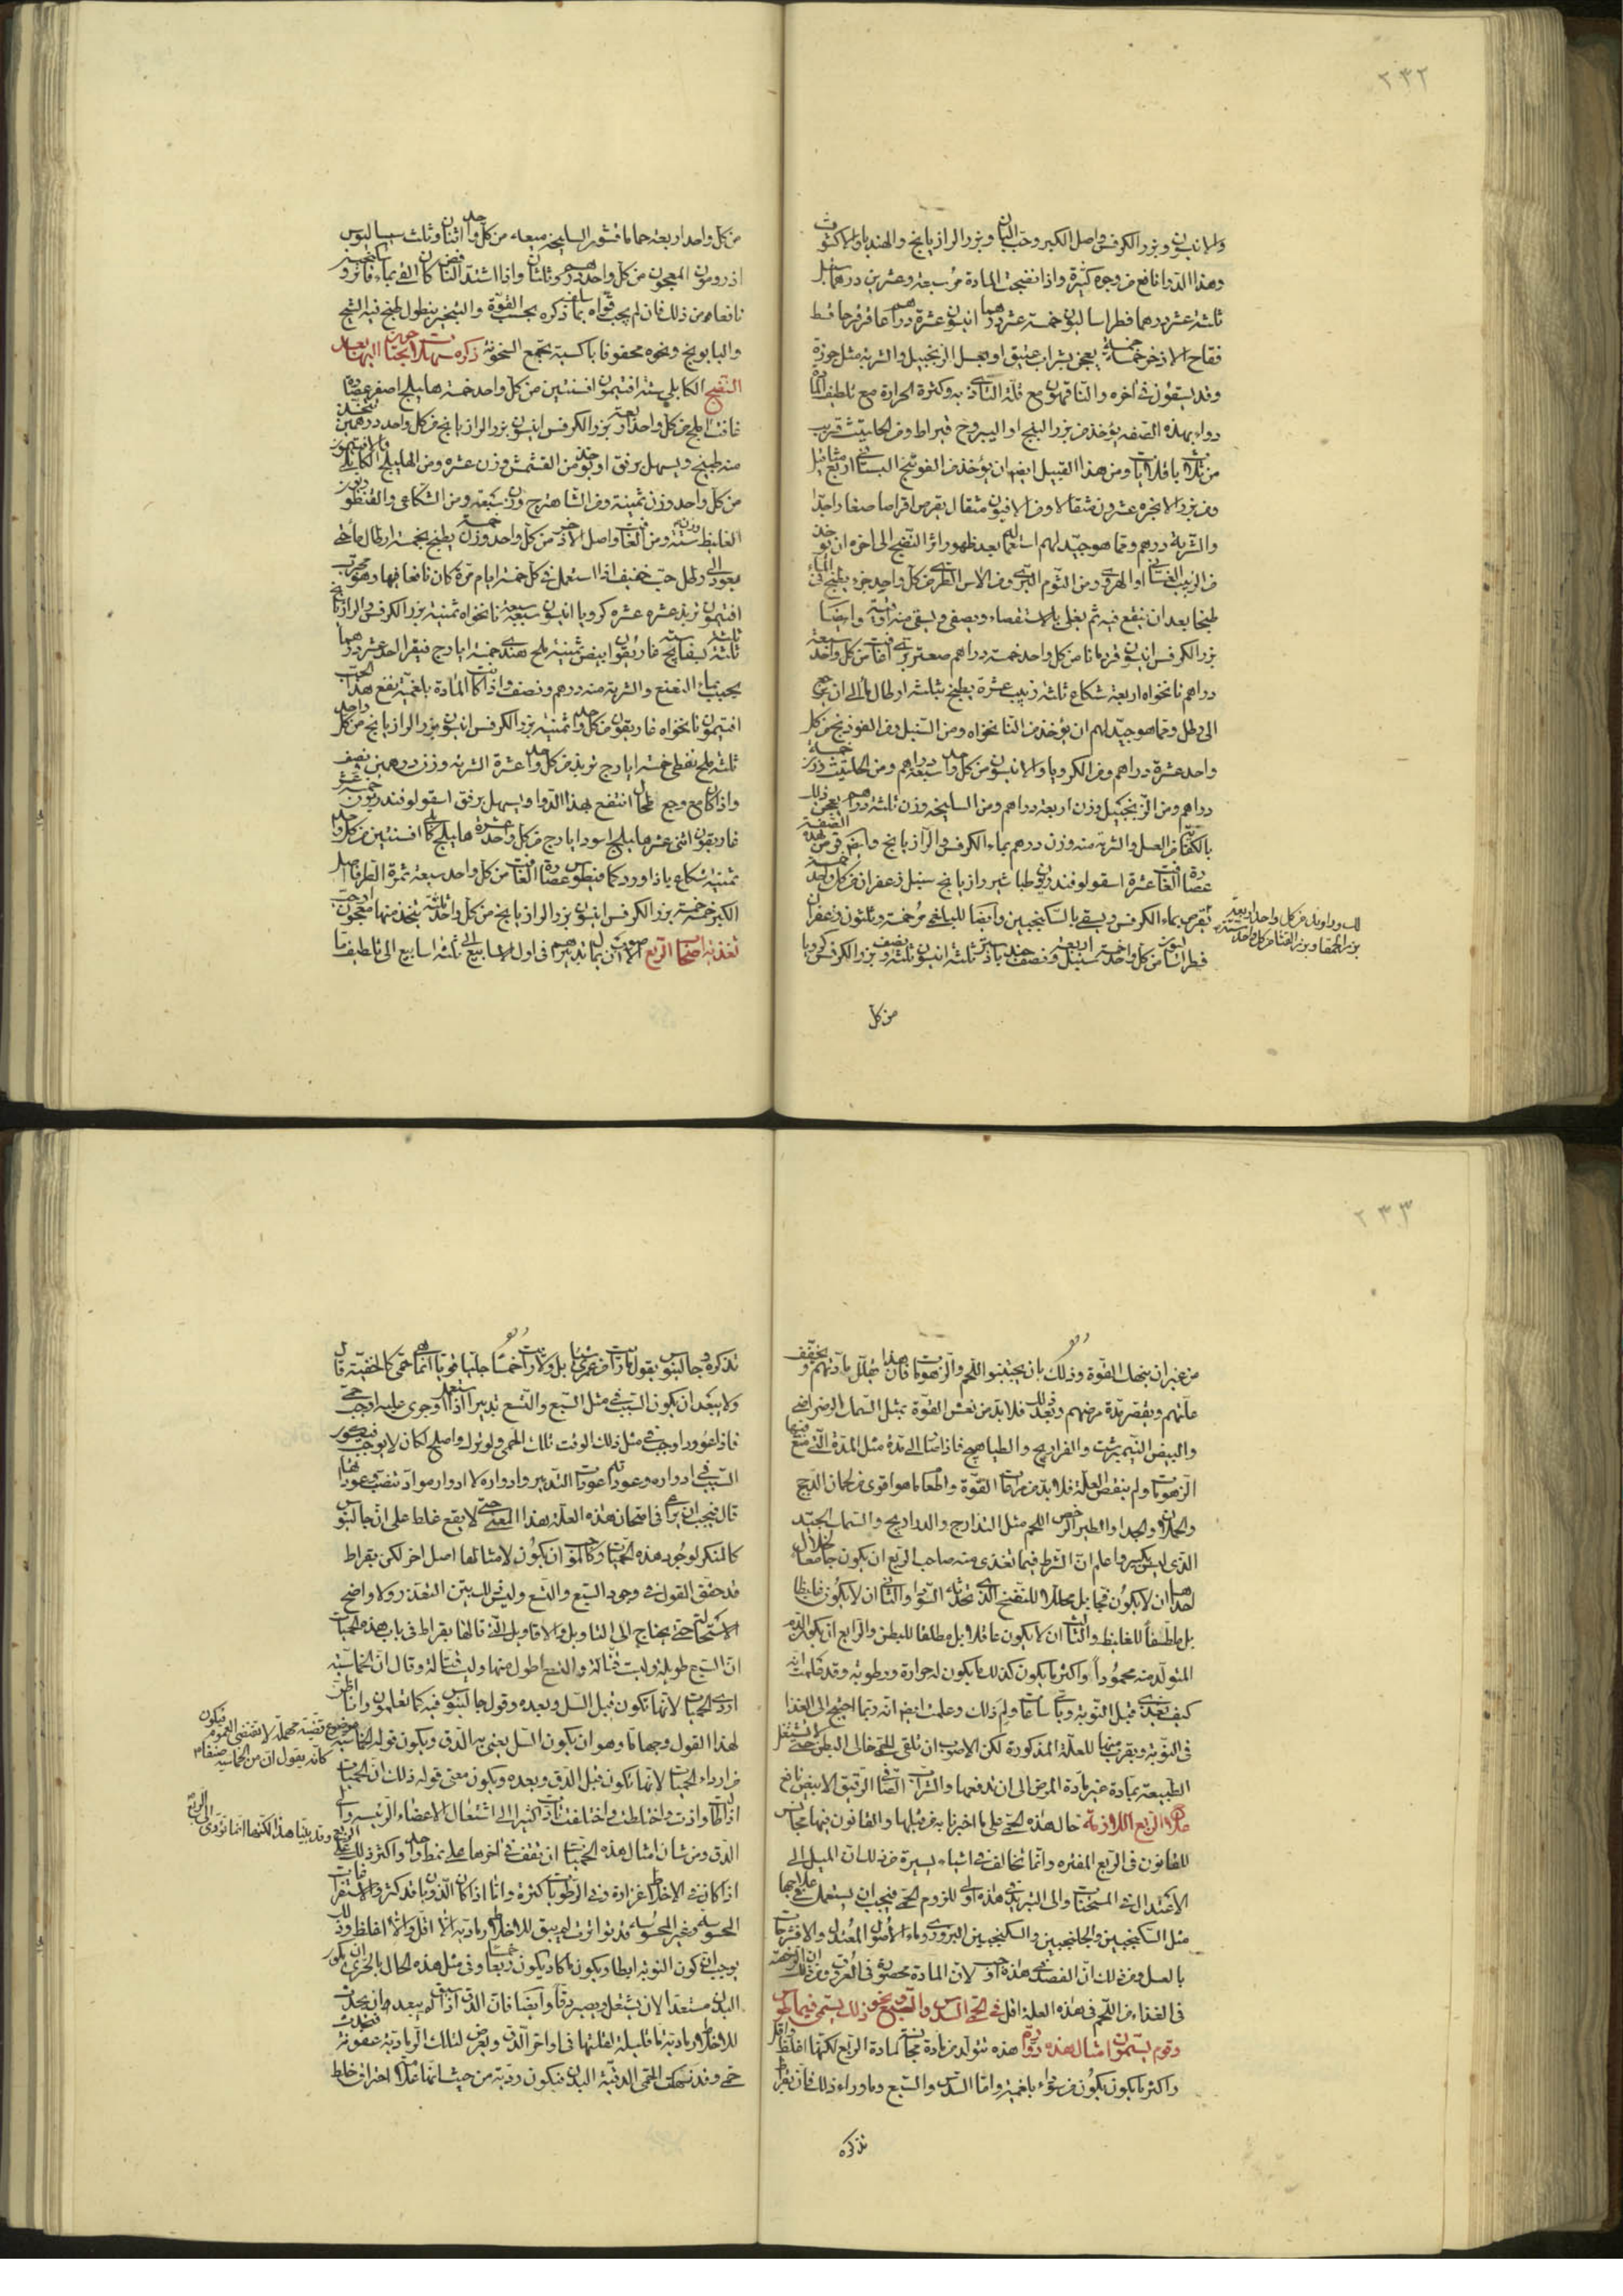 ٢٣٢
والانيسون وبزر الكرفس واصل الكبر وحب البان وبزر الرازيانج والهندبا والاكشوث
وهذا الدوا نافع من وجوه كثيرة واذا نضجت المادة سبعة وعشرين درهما سنبل
ثلثة عشر درهما فطراساليون خمسة عشر درهما انيسون عشرة دراهم
فقاح الاذخر خمسة يعجن بشراب عتيق او بعسل الزنجبيل والشربة مثل جوزة
وقد يسقون في اخره مع قلة التأذى به وكثرة الحرارة مع تلطيف المادة
دواء بهذه الصفة يؤخذ من بزر البنج او اليبروح قيراط ومن الحلتيت قريب
من ثلاث باقلايات ومن هذا القبيل ايضا ان يؤخذ من الفوتنج البستاني اربع مثاقيل
ومن بزر الانجره عشرون مثقالا ومن الافيون مثقال يقرص اقراصا صغارا جدا
والشربة درهم ومما هو جيد لهم استعمالا بعد ظهور اثر النضج الى اخره ان يؤخذ
من الزبيب او الهروى ومن الثوم البرى ومن الاس الطرى من كل واحد جزء يطبخ في الماء
طبخا بعد ان ينقع فيه ثم يغلى بالاستقصاء ويصفى ويسقى منه اوقية وايضا
بزر الكرفس انيسون قردمانا من كل واحد خمسة دراهم صعتر برى غافت من كل واحد سبعة
دراهم نانخواه اربعة شكاع ثلثة زبيب عشرة يطبخ بثلثة ارطال ماء الى ان يرجع
الى رطل ومما هو جيد لهم ان يؤخذ من النانخواه ومن السنبل ومن الفوذنج من كل
واحد عشرة دراهم ومن الكرويا والانيسون من كل واحد سبعة دراهم ومن الحلتيت وزن خمسة
دراهم ومن الزنجبيل وزن اربعة دراهم ومن السليخه وزن ثلثة دراهم يعجن ذلك
بالكفاية من العسل والشربة منه وزن درهم بماء الكرفس والرازيانج وايضا قرص بهذه الصفة
عصارة الغافت عشرة اسقولوفندريون طباشير رازيانج سنبل زعفران من كل واحد خمسة
يقرص بماء الكرفس ويسقى بالسكنجبين وايضا للبلغمى مر خمسة وثلثون زعفران
فطراساليون من كل واحد خمسة سنبل اربعة ونصف جندبادستر ثلثة انيسون ثلثة ونصف بزر الكرفس كرويا
لك وراوند من كل واحد اربعة
بزر الحمقا وبزر القثا من كل واحد ستة
من كل
من كل واحد اربعة حماما قشور السليخه ميعه من كل واحد اثنان وثلث سيساليوس
المعجون من كل واحد درهم وثلثان واذا اشتد النافض كان القئ بماء فاتر و
نافعا من ذلك فان لم يجب قواه بما سلف ذكره بحسب القوة والتبخير بنطول طبخ فيه الشيح
والبابونج ونحوه محفوفا باكسية تجمع السخونة ذكر مسهلات يحتاج اليها بعد
النضج الكابلى ستة افتيمون افسنتين من كل واحد خمسة هليلج اصفر عصارة
غافت املج من كل واحد اربعة بزر الكرفس انيسون بزر الرازيانج من كل واحد درهمين يتخذ
منه طبيخ ويسهل برفق او يؤخذ من القشمش وزن عشرة ومن الهليلج الكابلى والافتيمون
من كل واحد وزن ثمنية ومن الشاهترج وزن سبعة ومن الشكاعى والقنطوريون
الغليظ وزن ستة ومن الغافت واصل الاذخر من كل واحد وزن خمسة يطبخ بخمسة ارطال ماء حتى
يعود الى رطل حب خفيف اذا استعمل في كل خمسة ايام مرة كان نافعا فيها وهو مجرب
افتيمون تربد عشره عشره كرويا انيسون سبعة سبعة نانخواه ثمنية بزر الكرفس الرازيانج
ثلثة ثلثة بسفايج ستة غاريقون ابيض ثمنية ملح هندى خمسة ايارج فيقرا احد عشر درهما
يحبب بماء النعنع والشربة منه درهم ونصف واذا كانت المادة بلغمية ينفع هذا الحب
افتيمون نانخواه غاريقون من كل واحد ثمنية بزر الكرفس انيسون بزر الرازيانج من كل واحد
ثلثة ملح نفطى خمسة ايارج تربد من كل واحد عشرة الشربة وزن درهمين ونصف
واذا كان مع وجع طحال انتفع بهذا الدوا ويسهل برفق اسقولوفندريون خمسة عشر
غاريقون اثنى عشر هليلج اسود ايارج من كل واحد عشرة هليلج كابلى افسنتين من كل واحد
ثمنية شكاع باذاورد كمافيطوس عصارة الغافت من كل واحد سبعة ثمرة الطرفا اصل
الكبر خمسة خمسة بزر الكرفس انيسون بزر الرازيانج من كل واحد ثلثة يتخذ منها معجون او حب
تغذية اصحاب الربع الاصوب ان يبتدا بهم في اول الاسابيع الى ثلثة اسابيع الى تلطيف ما
٢٣٣
من غير ان ينهك القوة وذلك بان يجتنبوا اللحم والزهومات فان هذا يقلل مادتهم ويخفف
علتهم ويقصر مدة مرضهم وبعد ذلك فلا بد من نعش القوة بمثل السمك الرضراضى
والبيض النيمبرشت والفراريج والطياهيج فاذا انتهى الى مدة مثل المدة التى منع فيها
الزهومات ولم ينقض العلة فلا بد من مراعات القوة والطعام بما هو اقوى من لحمان الدجج
والحملان والجداء والطير الرخص اللحم مثل التدارج والدراريج والسمك الجيد
الذى ليس بكبير واعلم ان الشرط فيما تغذى منه صاحب الربع ان يكون جامعا لخلال
احداها ان لا يكون نفاخا بل محللا للنفخ الذى تحدثه السودا والثانى ان لا يكون غليظا
بل ملطفا للغليظ والثالث ان لا يكون عاقلا بل مطلقا للبطن والرابع ان يكون الدم
المتولد منه محمودا واكثر ما يكون كذلك ما يكون له حرارة ورطوبة وقد علمت انه
كيف يغذى قبل النوبة وبكم ساعات ولم ذلك وعلمت ايضا انه ربما احتيج الى الغذا
في النوبة وبقرب منها للعلة المذكورة لكن الاصوب ان تلقى الحمى خالى البطن حتى لا تشتغل
الطبيعة بمادة غير مادة المرض الى ان تدفعها والشراب الصافى الرقيق الابيض نافع
علاج الربع اللازمة حال هذه الحمى على ما اخبرنا به من قبلها والقانون فيها مجانس
للقانون في الربع المفتره وانما تخالف في اشياء يسيرة من ذلك ان الميل الى
الاعتدال في المسخنات والى التبريد في هذه اولى للزوم الحمى فيجب ان يستعمل في علاجها
مثل السكنجبين والجلنجبين والسكنجبين البزورى وماء الاصول المعتدل والافشرجات
بالعسل ومن ذلك ان الفصد في هذه اوجب لان المادة محصورة في العروق ومن ذلك ان الرخصة
في الغذاء من اللحم في هذه العلة اقل في حمى السدس والسبع ونحو ذلك يسمى فيما يكون
وقوم يسمون امثال هذه دوارم هذه تتولد من مادة مجانسة لمادة الربع لكنها اغلظ واقل
واكثر ما يكون يكون من سوداء بلغمية واما السدس والسبع وما وراء ذلك فان بقراط
تذكره
تذكره وجالينوس يقول ما رايت من عمرى شيا بل ولا رايت خمسا جليا قويا انما هى حمى كالخفية قال
ولا يبعد ان يكون السبب في مثل السبع والتسع تدبيرا اذا استعمل وجرى عليه اوجب حمى
فاذا عوود اوجب في مثل ذلك الوقت تلك الحمى ولو ترك واصلح لكان لا يوجب فيكون
السبب في ادواره وعوداته عودات التدبير وادواره لا ادوار مواد تنضب وعوداتها
قال فيجب ان يراعى في امتحان هذه العلة هذا المعنى حتى لا يقع غلط على ان جالينوس
كالمنكر لوجود هذه الحميات وكالمستوجب ان يكون لامثالها اصل اخر لكن بقراط
قد حقق القول في وجود السبع والتسع وليس ذلك ببين التعذر ولا واضح
الاستحالة حتى يحتاج الى التاويل والاقاويل التى قالها بقراط في باب هذه الحميات
ان السبع طويلة وليست قتالة والتسع اطول منها وليست قتالة وقال ان الخماسية
اردى الحميات لانها تكون قبل السل وبعده وقول جالينوس فيه كما تعلمون وانا اظن
لهذا القول وجها ما وهو ان يكون السل يعنى به الدق ويكون قوله الخماسية
من ارداء الحميات لانها تكون قبل الدق وبعده ويكون معنى قوله ذلك ان الحميات
اذا طالت واذت واختلطت واختلفت تادت كثيرا الى اشتعال الاعضاء الرئيسة والى
الدق ومن شان امثال هذه الحميات ان تقف في اخرها على نمط واحد واكثر ذلك على
اذا كانت في الاخلاط غزارة وفي الرطوبات كثرة واما اذا كان الذوبان قد كثر والاستفراغات
المحسوسة وغير المحسوسة قد تواترت لم يبق للاخلاط الا اقل والا اغلظ وذلك
يوجب ان يكون النوبة ابطا ويكون ما كاد يكون ربعا خمسا وفي مثل هذه الحال بالحرى ان يكون
البدن مستعدا لان يشتعل ويصير دقا وايضا فان الدق اذا سبق لم يبعد ان يحدث
للاخلاط رمادية ما قليلة لقلتها في اواخر الدق ويعرض لتلك الرمادية عفونة
حمى وقد نهكت الحمى الدقية البدن فيكون ردية من حيث انها علامة احتراق خلط
موضوع قضية مهملة لا تقتضى العموم فيكون
كانه يقول ان من الخماسية صنفا
وقد بينا هذا لكنها انما تؤدى الى الربع